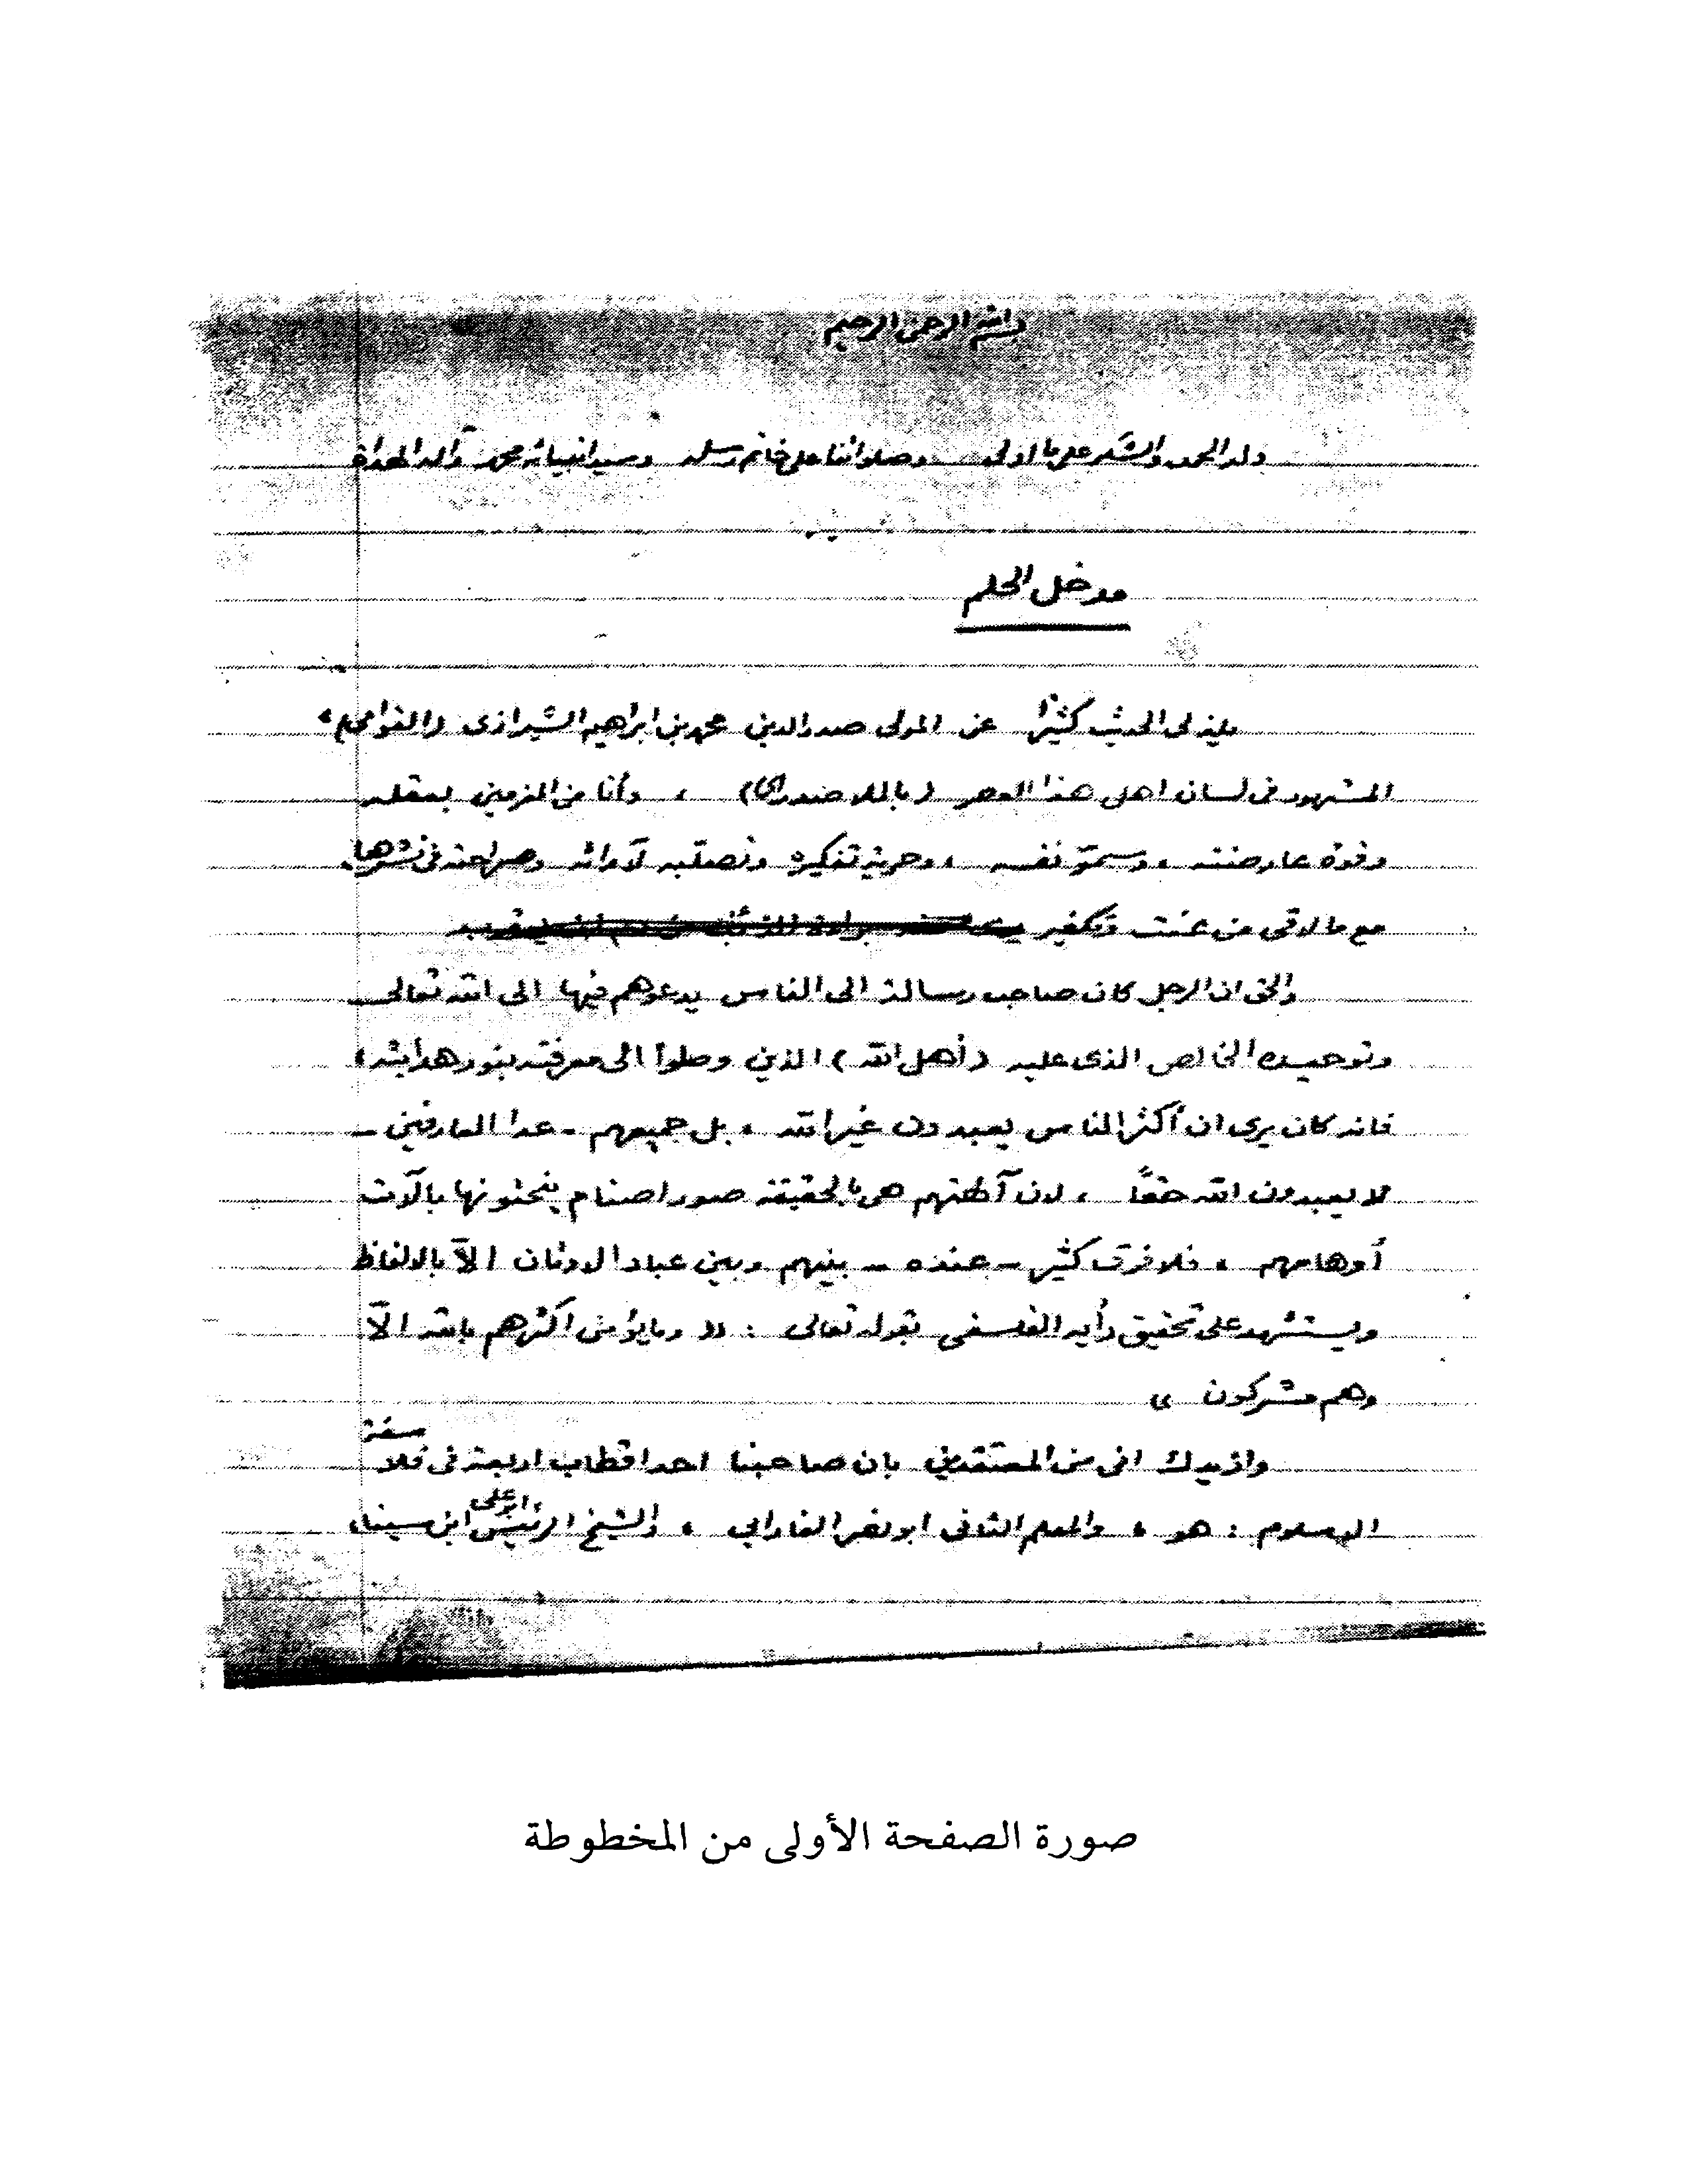 بسم الله الرحمن الرحيم
وله الحمد والشكر على ما اولى وصلواتنا على خاتم رسله وسيد انبيائه محمد وآله الهداة
مدخل الحلم
يلذ لى الحديث كثيراً عن المولى صدر الدين محمد بن ابراهيم الشيرازى (القوامى)
المشهور فى لسان اهل هذا العصر (بالملا صدرا) ، وأنا من المؤمنين بعقله
وقوة عارضته ، وسموّ نفسه ، وحرية تفكيره وتصلّبه لآرائه وصراحته فى نشرها
مع ما لاقى من عنت وتكفير
والحق ان الرجل كان صاحب رسالة الى الناس يدعوهم فيها الى الله تعالى
وتوحيده الخالص الذى عليه (أهل الله) الذين وصلوا الى معرفته بنور هدايته ،
فانه كان يرى ان أكثر الناس يعبدون غير الله ، بل جميعهم - عدا العارفين -
لا يعبدون الله حقاً ، لان آلهتهم هى بالحقيقة صور اصنام ينحتونها بآلات
أوهامهم ، فلا فرق كثير - عنده - بينهم وبين عباد الاوثان الاّ بالالفاظ
ويستشهد على تحقيق رأيه الفلسفى بقوله تعالى : (( وما يؤمن اكثرهم بالله الاّ
وهم مشركون ))
وازيدك انى من المعتقدين بان صاحبنا احد اقطاب اربعة فى فلاسفة
الاسلام : هو ، والمعلم الثانى ابو نصر الفارابي ، والشيخ الرئيس ابو على ابن سينا،
صورة الصفحة الأولى من المخطوطة